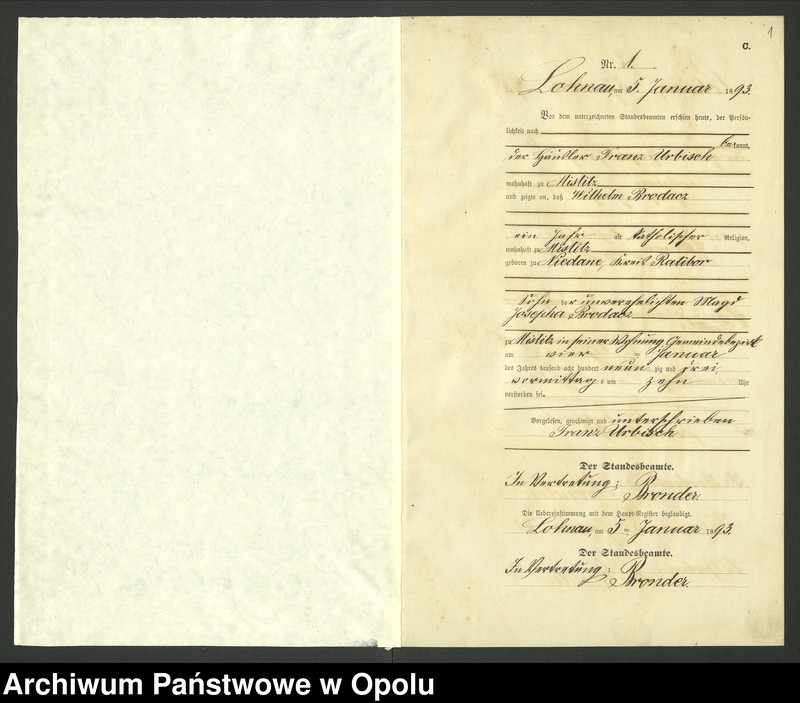 1
C.
Nr. 1.
Lohnau, am 5. Januar 1893.
Vor dem unterzeichneten Standesbeamten erschien heute, der Persön-
lichkeit nach
bekannt,
der Häusler Franz Urbisch
wohnhaft zu Mistitz
und zeigte an, daß Wilhelm Brodacz
ein Jahr alt katholischer Religion,
wohnhaft zu Mistitz
geboren zu Niedane, Kreis Ratibor
Sohn der unverehelichten Magd
Josepha Brodacz
zu Mistitz in seiner Wohnung, Gemeindebezirk
am vier ten Januar
des Jahres tausend acht hundert neun zig und drei
vormittags um zehn Uhr
verstorben sei.
Vorgelesen, genehmigt und unterschrieben
Franz Urbisch
Der Standesbeamte.
In Vertretung: Bronder.
Die Uebereinstimmung mit dem Haupt-Register beglaubigt.
Lohnau, am 5ten Januar 1893.
Der Standesbeamte.
In Vertretung: Bronder.
Archiwum Państwowe w Opolu